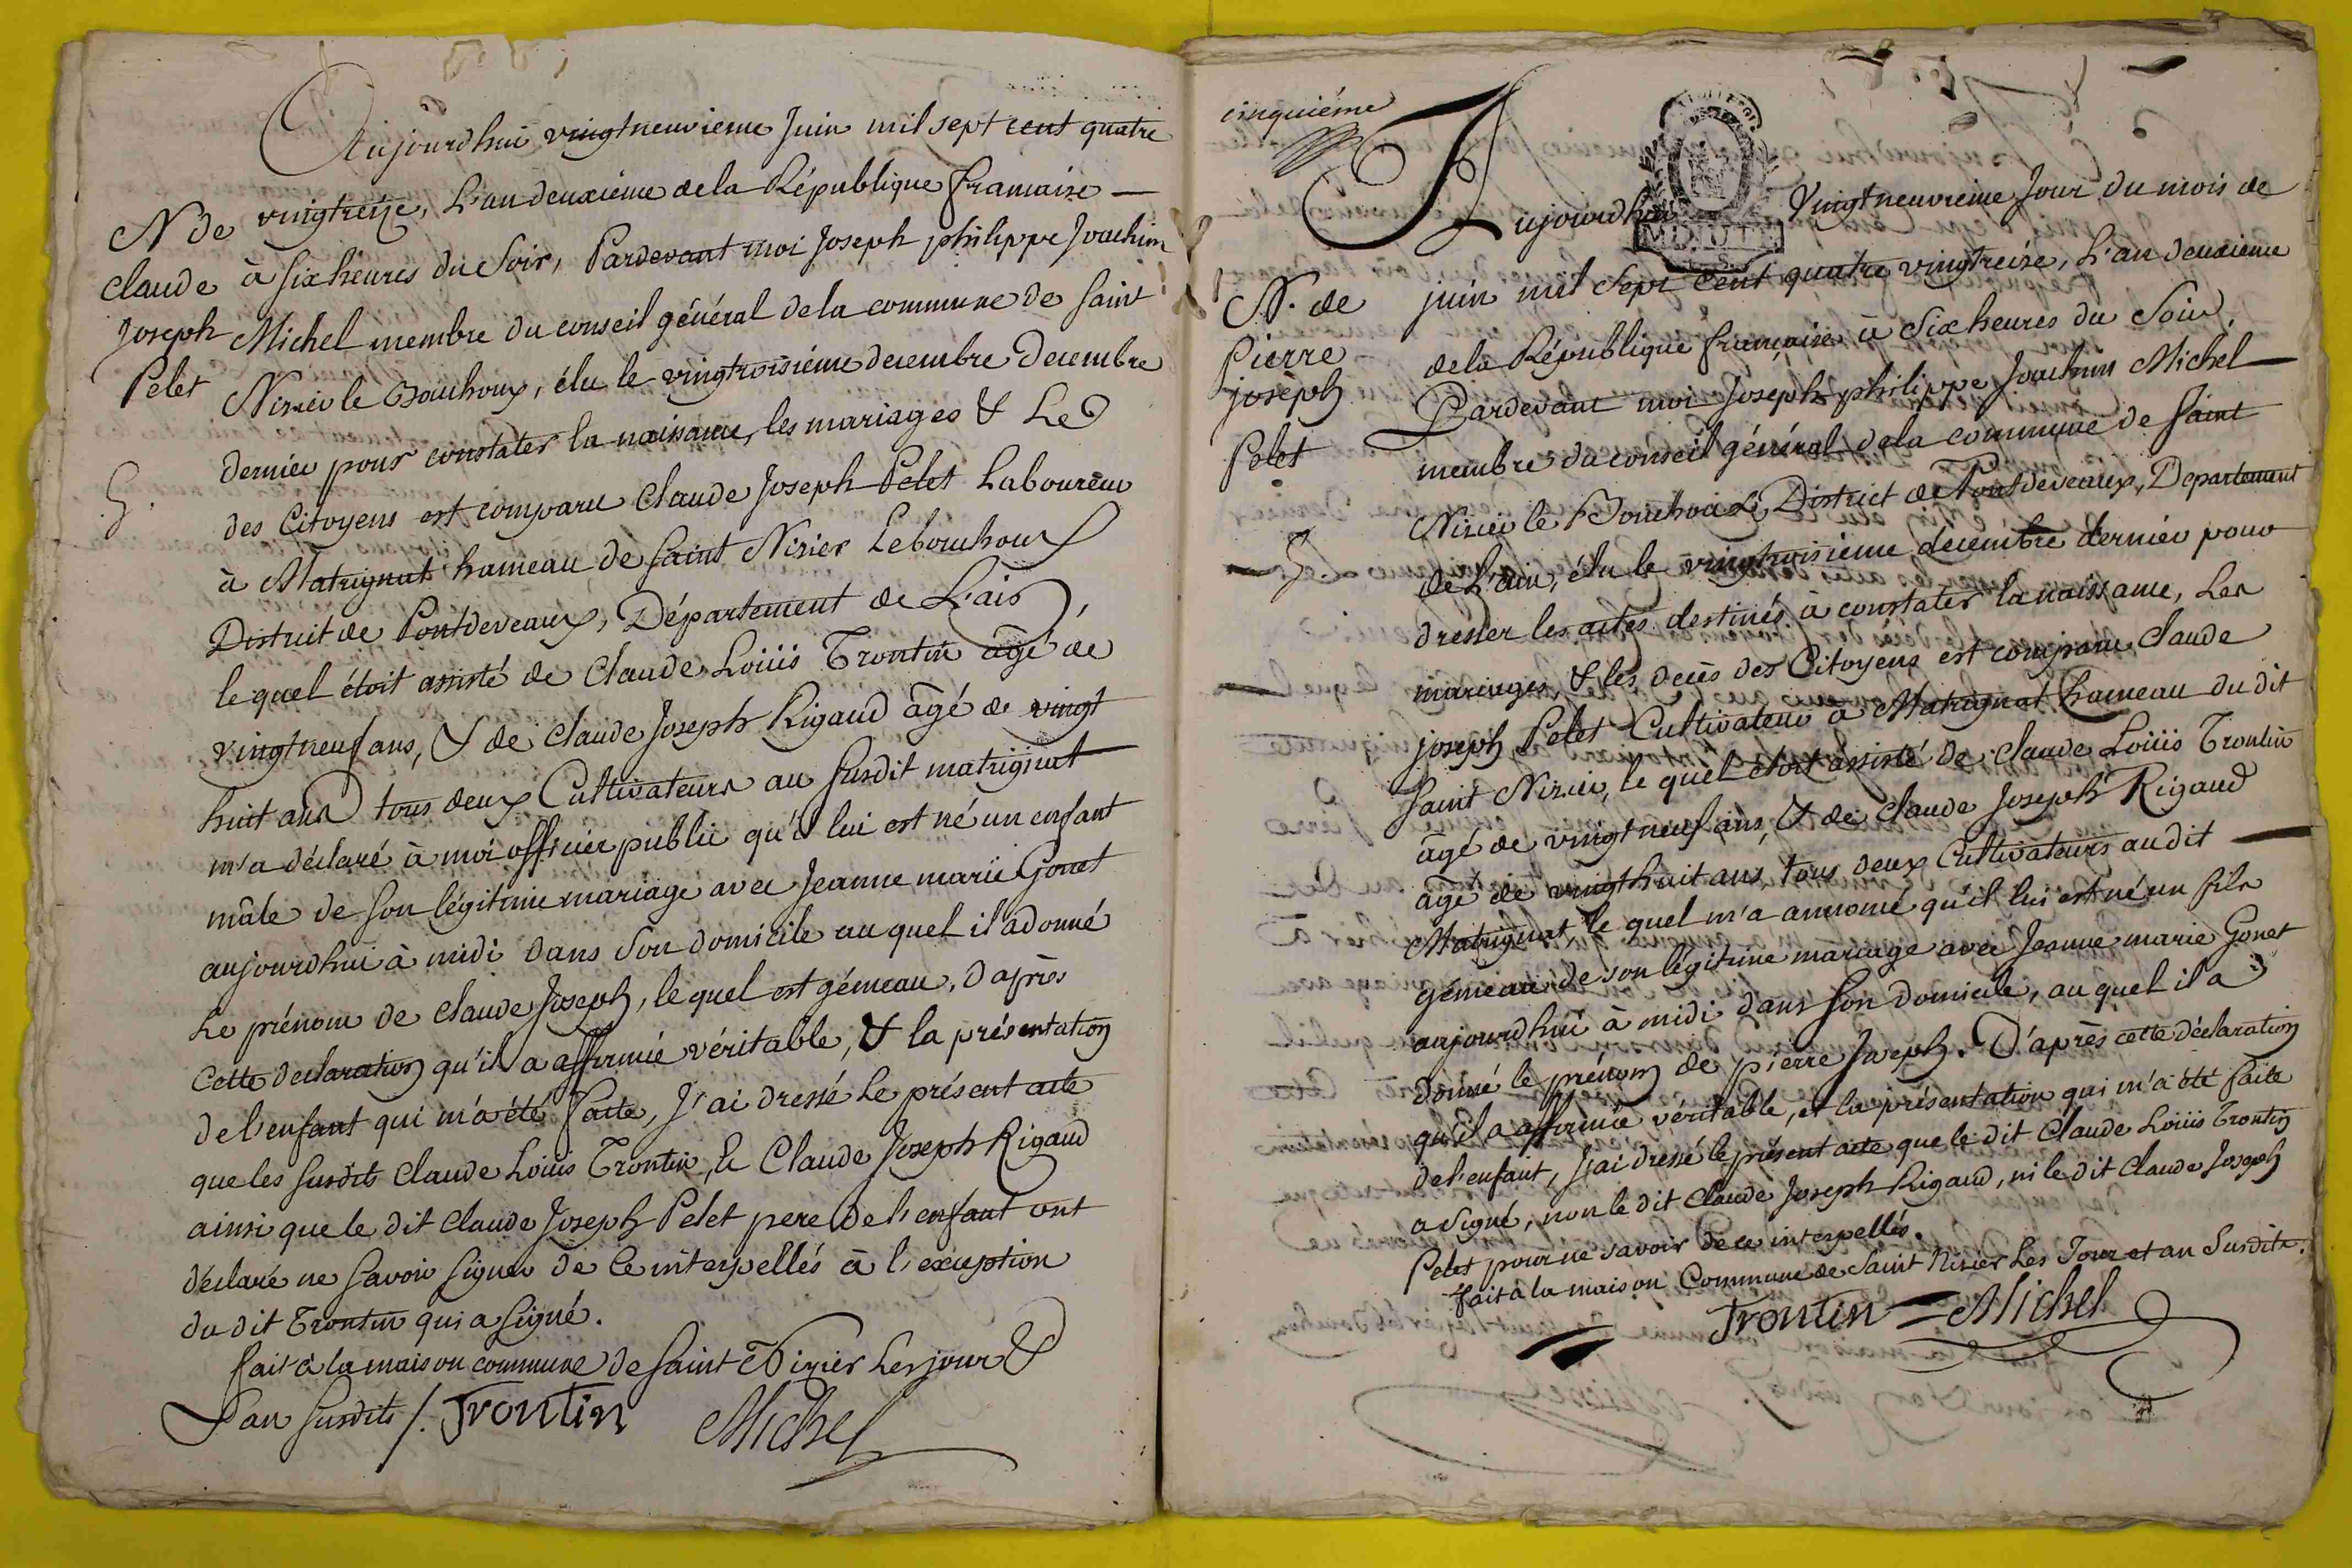 Aujourdhui vingtneuvieme Juin mil sept cent quatre
vingtreize, L'an deuxieme de la République francaise —
à six heures du Soir, Pardevant moi Joseph philippe Joachim
Michel membre du conseil général de la commune de Saint
Nizier le Bouchoux, élu le vingtroisiéme decembre Decembre
dernier pour constater la naissance, les mariages & Le
des Citoyens est comparu Claude Joseph Pelet Laboureur
à Matrignat hameau de Saint Nizier Lebouchoux
District de Pontdeveaux, Département de L'ain,
le quel étoit assisté de Claude Loüis Trontin âgé de
vingt neuf ans, & de Claude Joseph Rigaud âgé de vingt
huit ans tous deux Cultivateurs au susdit matrignat
m'a déclaré à moi officier public qu'il lui est né un enfant
mâle de son légitime mariage avec Jeanne marie Gonet
aujourdhui à midi dans son domicile au quel il a donné
Le prénom de Claude Joseph, le quel est gémeau, d'après
Cette declaration qu'il a affirmée véritable, & la présentation
de l'enfant qui m'a été faite, J'ai dressé Le présent acte
que les susdits Claude Loüis Trontin, & Claude Joseph Rigaud
ainsi que le dit Claude Joseph Pelet pere de l'enfant ont
déclaré ne savoir signer de ce interpellés à l'exception
du dit Trontin qui a signé.
fait à la maison commune de Saint Nizier Les jour &
L'an susdits /. Trontin Michel
N de
Claude
Joseph
Pelet
5.
cinquiéme
Aujourdhui Vingt neuvieme Jour du mois de
juin mil Sept Cent quatre vingtreize, L'an deuxieme
de la République française à Six heures du Soir,
Pardevant moi Joseph philippe Joachim Michel
membre du conseil général de la commune de Saint
Nizier le Bouchoux, District de Pontdeveaux, Departement
de L'ain, élu le vingtroisieme decembre dernier pour
dresser les actes destinés à constater la naissance, Les
mariages, & les decès des Citoyens est comparu Claude
joseph Pelet Cultivateur à Matrignat hameau du dit
Saint Nizier, le quel étoit assisté de Claude Loüis Trontin
âgé de vingt neuf ans, & de Claude Joseph Rigaud
âgé de vingt huit ans, tous deux Cultivateurs au dit
Matrignat, le quel m'a annoncé qu'il lui est né un fils
gémeau de son légitime mariage avec Jeanne marie Gonet
aujourdhui à midi dans son domicile, au quel il a
donné le prénom de pierre Joseph. D'après cette déclaration
qu'il a affirmée véritable, et la présentation qui m'a été faite
de l'enfant, J'ai dressé le présent acte que le dit Claude Loüis Trontin
a signé, non le dit Claude Joseph Rigaud, ni le dit Claude Joseph
Pelet pour ne savoir de ce interpellés.
fait à la maison Commune de Saint Nizier Les Jour et an Susdits.
Trontin Michel
N. de
Pierre
joseph
Pelet
5.